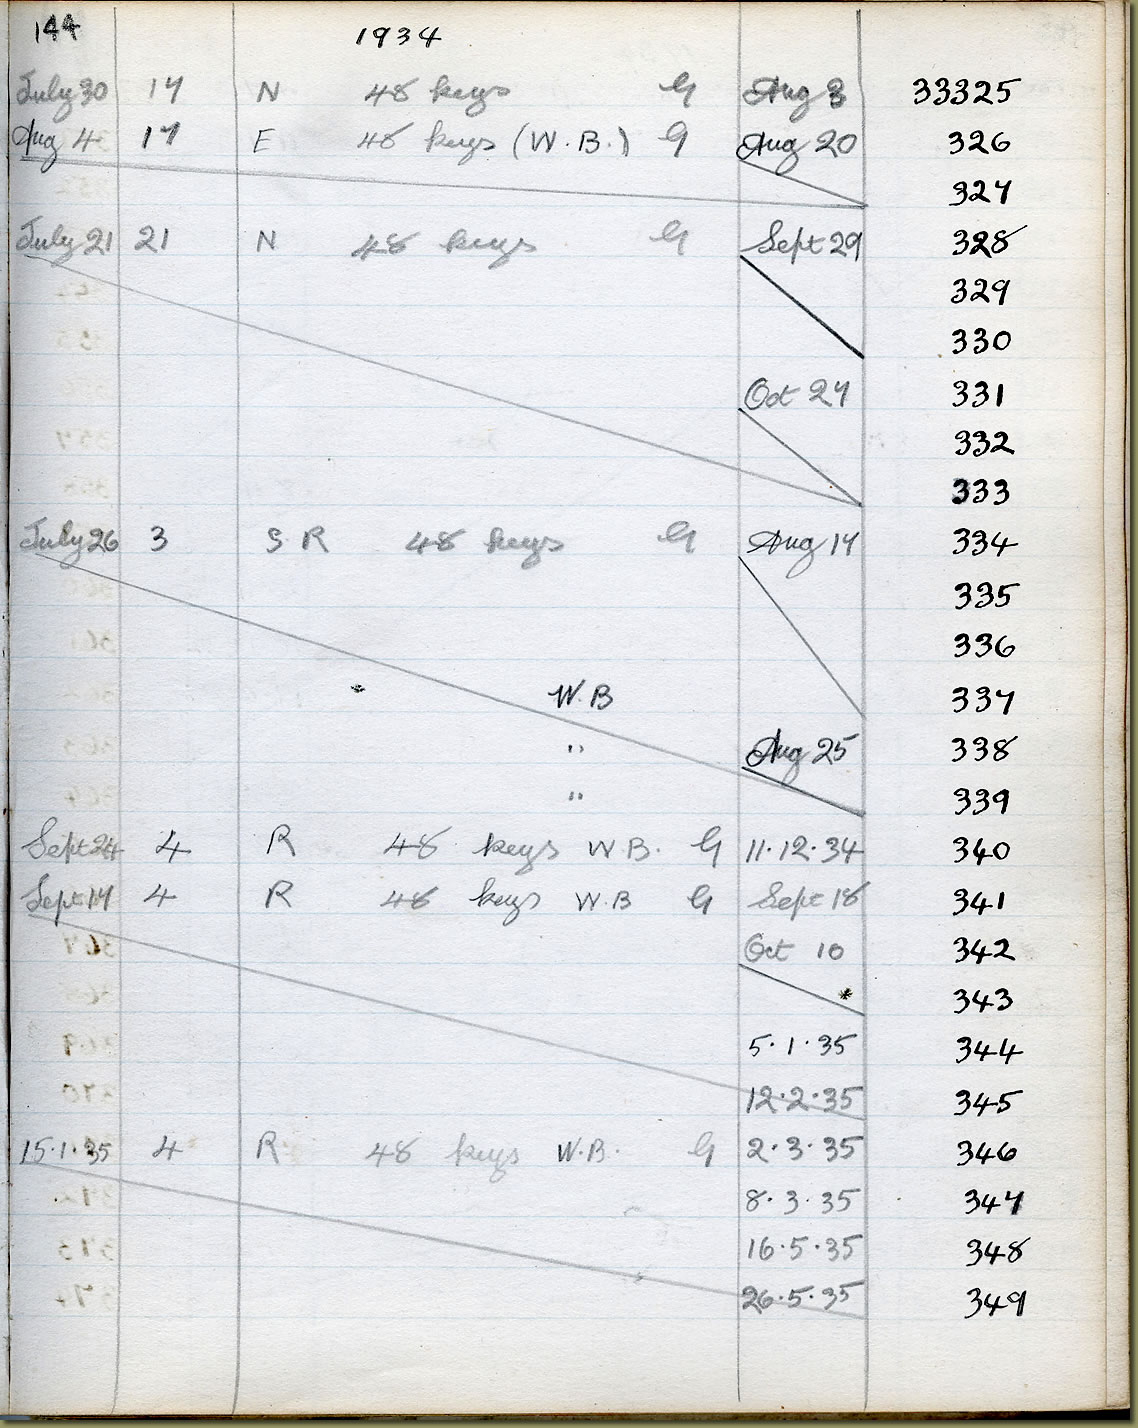 144 1934
July 30 17 N 48 keys G Aug 3 33325
Aug 4 17 E 48 keys (W.B.) G Aug 20 326
327
July 21 21 N 48 keys G Sept 29 328
329
330
Oct 27 331
332
333
July 26 3 S R 48 keys G Aug 17 334
335
336
W.B 337
" Aug 25 338
" 339
Sept 24 4 R 48 keys W.B. G 11.12.34 340
Sept 17 4 R 48 keys W.B G Sept 18 341
Oct 10 342
343
5.1.35 344
12.2.35 345
15.1.35 4 R 48 keys W.B. G 2.3.35 346
8.3.35 347
16.5.35 348
26.5.35 349